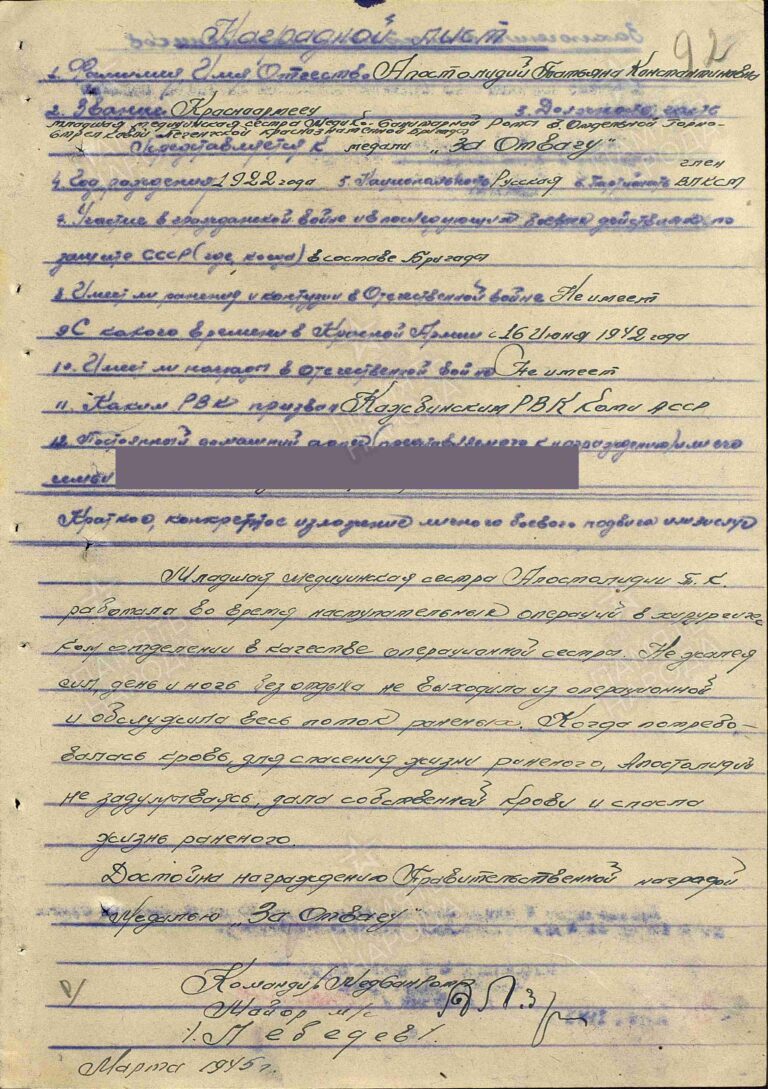 Наградной лист
92
1. Фамилия Имя Отчество Апостолидий Татьяна Константиновна
2. Звание Красноармеец 3. Должность, часть
младшая медицинская сестра Медико-Санитарной Роты 8. Отдельной Горно-
Стрелковой Печенгской Краснознаменной Бригады
Представляется к медали „За Отвагу"
4. Год рождения 1922 года 5. Национальность Русская 6. Партийность член ВЛКСМ
7. Участие в гражданской войне и в последующих боевых действиях по
защите СССР (где, когда) в составе Бригады
8. Имеет ли ранения и контузии в Отечественной войне Не имеет
9. С какого времени в Красной Армии с 16 Июня 1942 года
10. Имеет ли награды в Отечественной войне Не имеет
11. Каким РВК призван РВК Коми АССР
12. Постоянный домашний адрес (представляемого к награждению) или его
семьи
Краткое, конкретное изложение личного боевого подвига или заслуг
Младшая медицинская сестра Апостолидий Т. К.
работала во время наступательных операций в хирургичес
ком отделении в качестве операционной сестра. Не жалея
сил, день и ночь без отдыха не выходила из операционной
и обслужила весь поток раненых. Когда потребо-
валась кровь, для спасения жизни раненого, Апостолидий
не задумываясь, дала собственной крови и спасла
жизнь раненого.
Достойна награждению Правительственной наградой
Медалью „За Отвагу"
Командир Медсанроты
Майор м/с
/. Лебедев /.
Марта 1945 г.